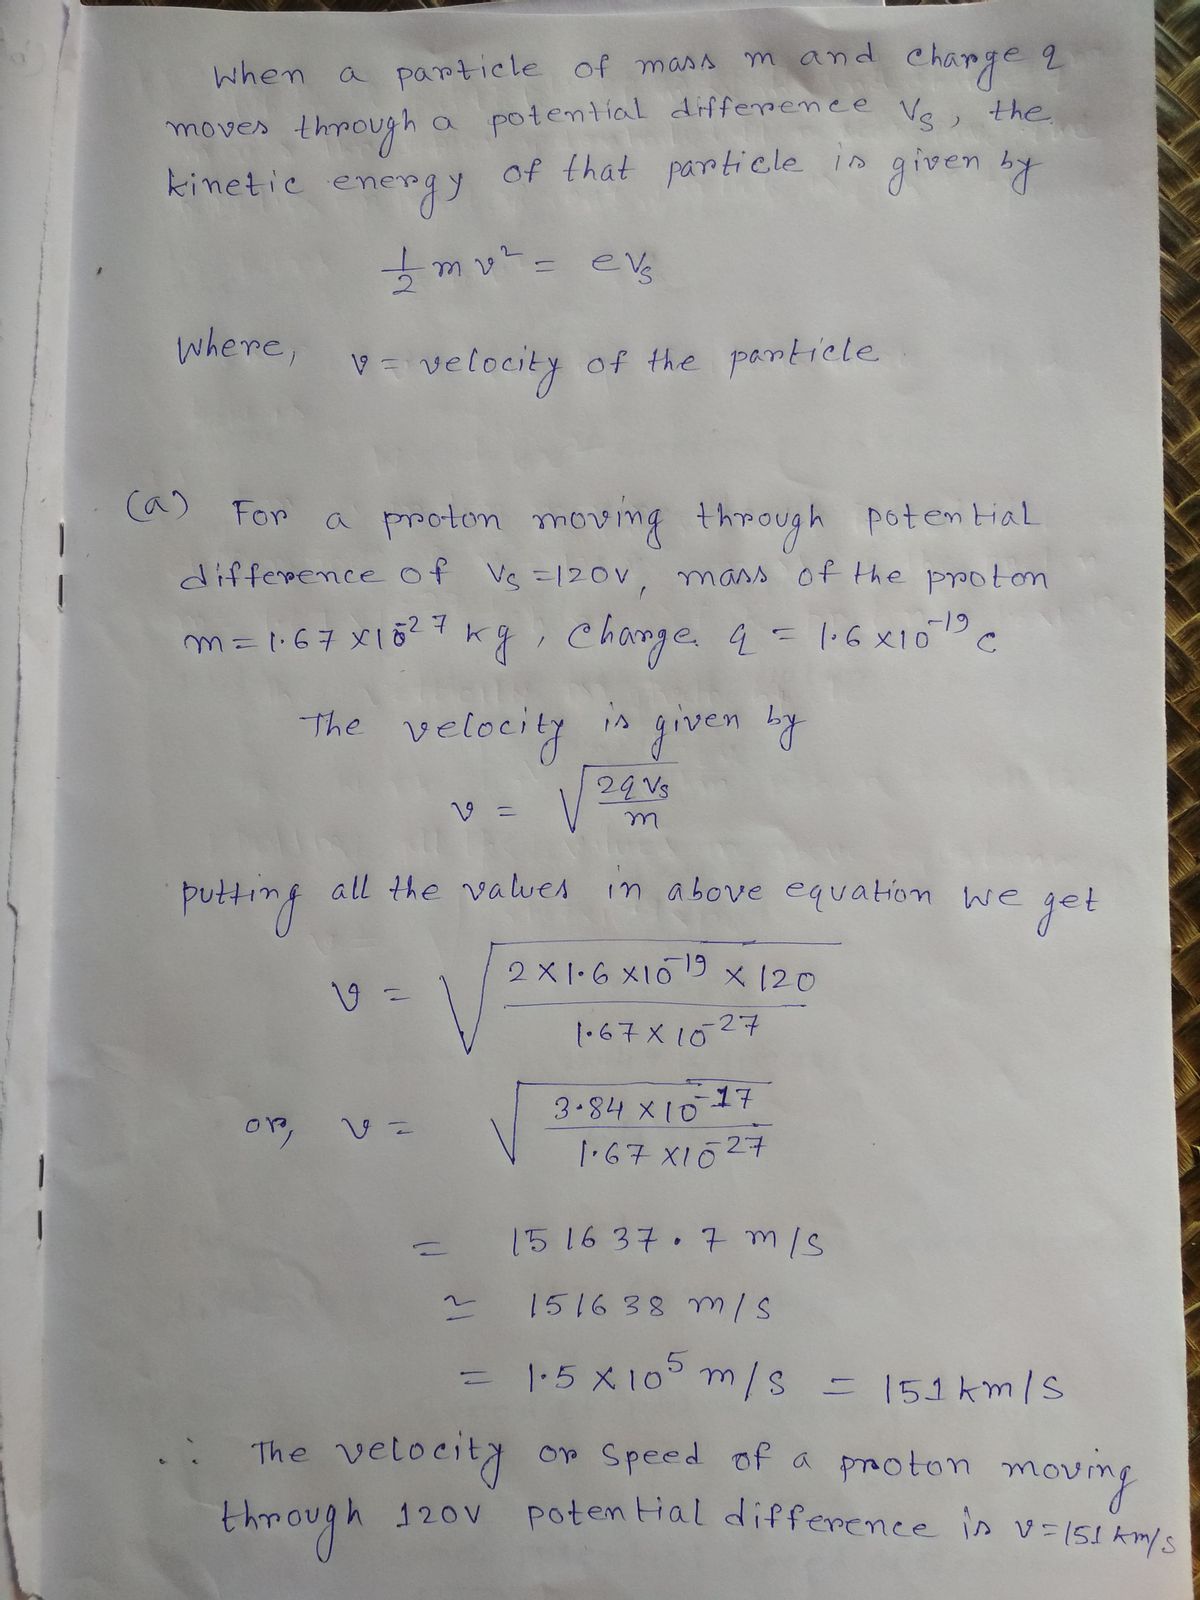 When a particle of mass m and charge q
moves through a potential difference Vs, the
kinetic energy of that particle is given by
1/2 mv² = eVs
Where, v = velocity of the particle
(a) For a proton moving through potential
difference of Vs = 120V, mass of the proton
m = 1.67 × 10⁻²⁷ kg, charge q = 1.6 × 10⁻¹⁹ C
The velocity is given by
v = √(2qVs / m)
putting all the values in above equation we get
v = √(2 × 1.6 × 10⁻¹⁹ × 120 / 1.67 × 10⁻²⁷)
or, v = √(3.84 × 10⁻¹⁷ / 1.67 × 10⁻²⁷)
= 151637.7 m/s
≃ 151638 m/s
= 1.5 × 10⁵ m/s = 151 km/s
∴ The velocity or speed of a proton moving
through 120V potential difference is v = 151 km/s